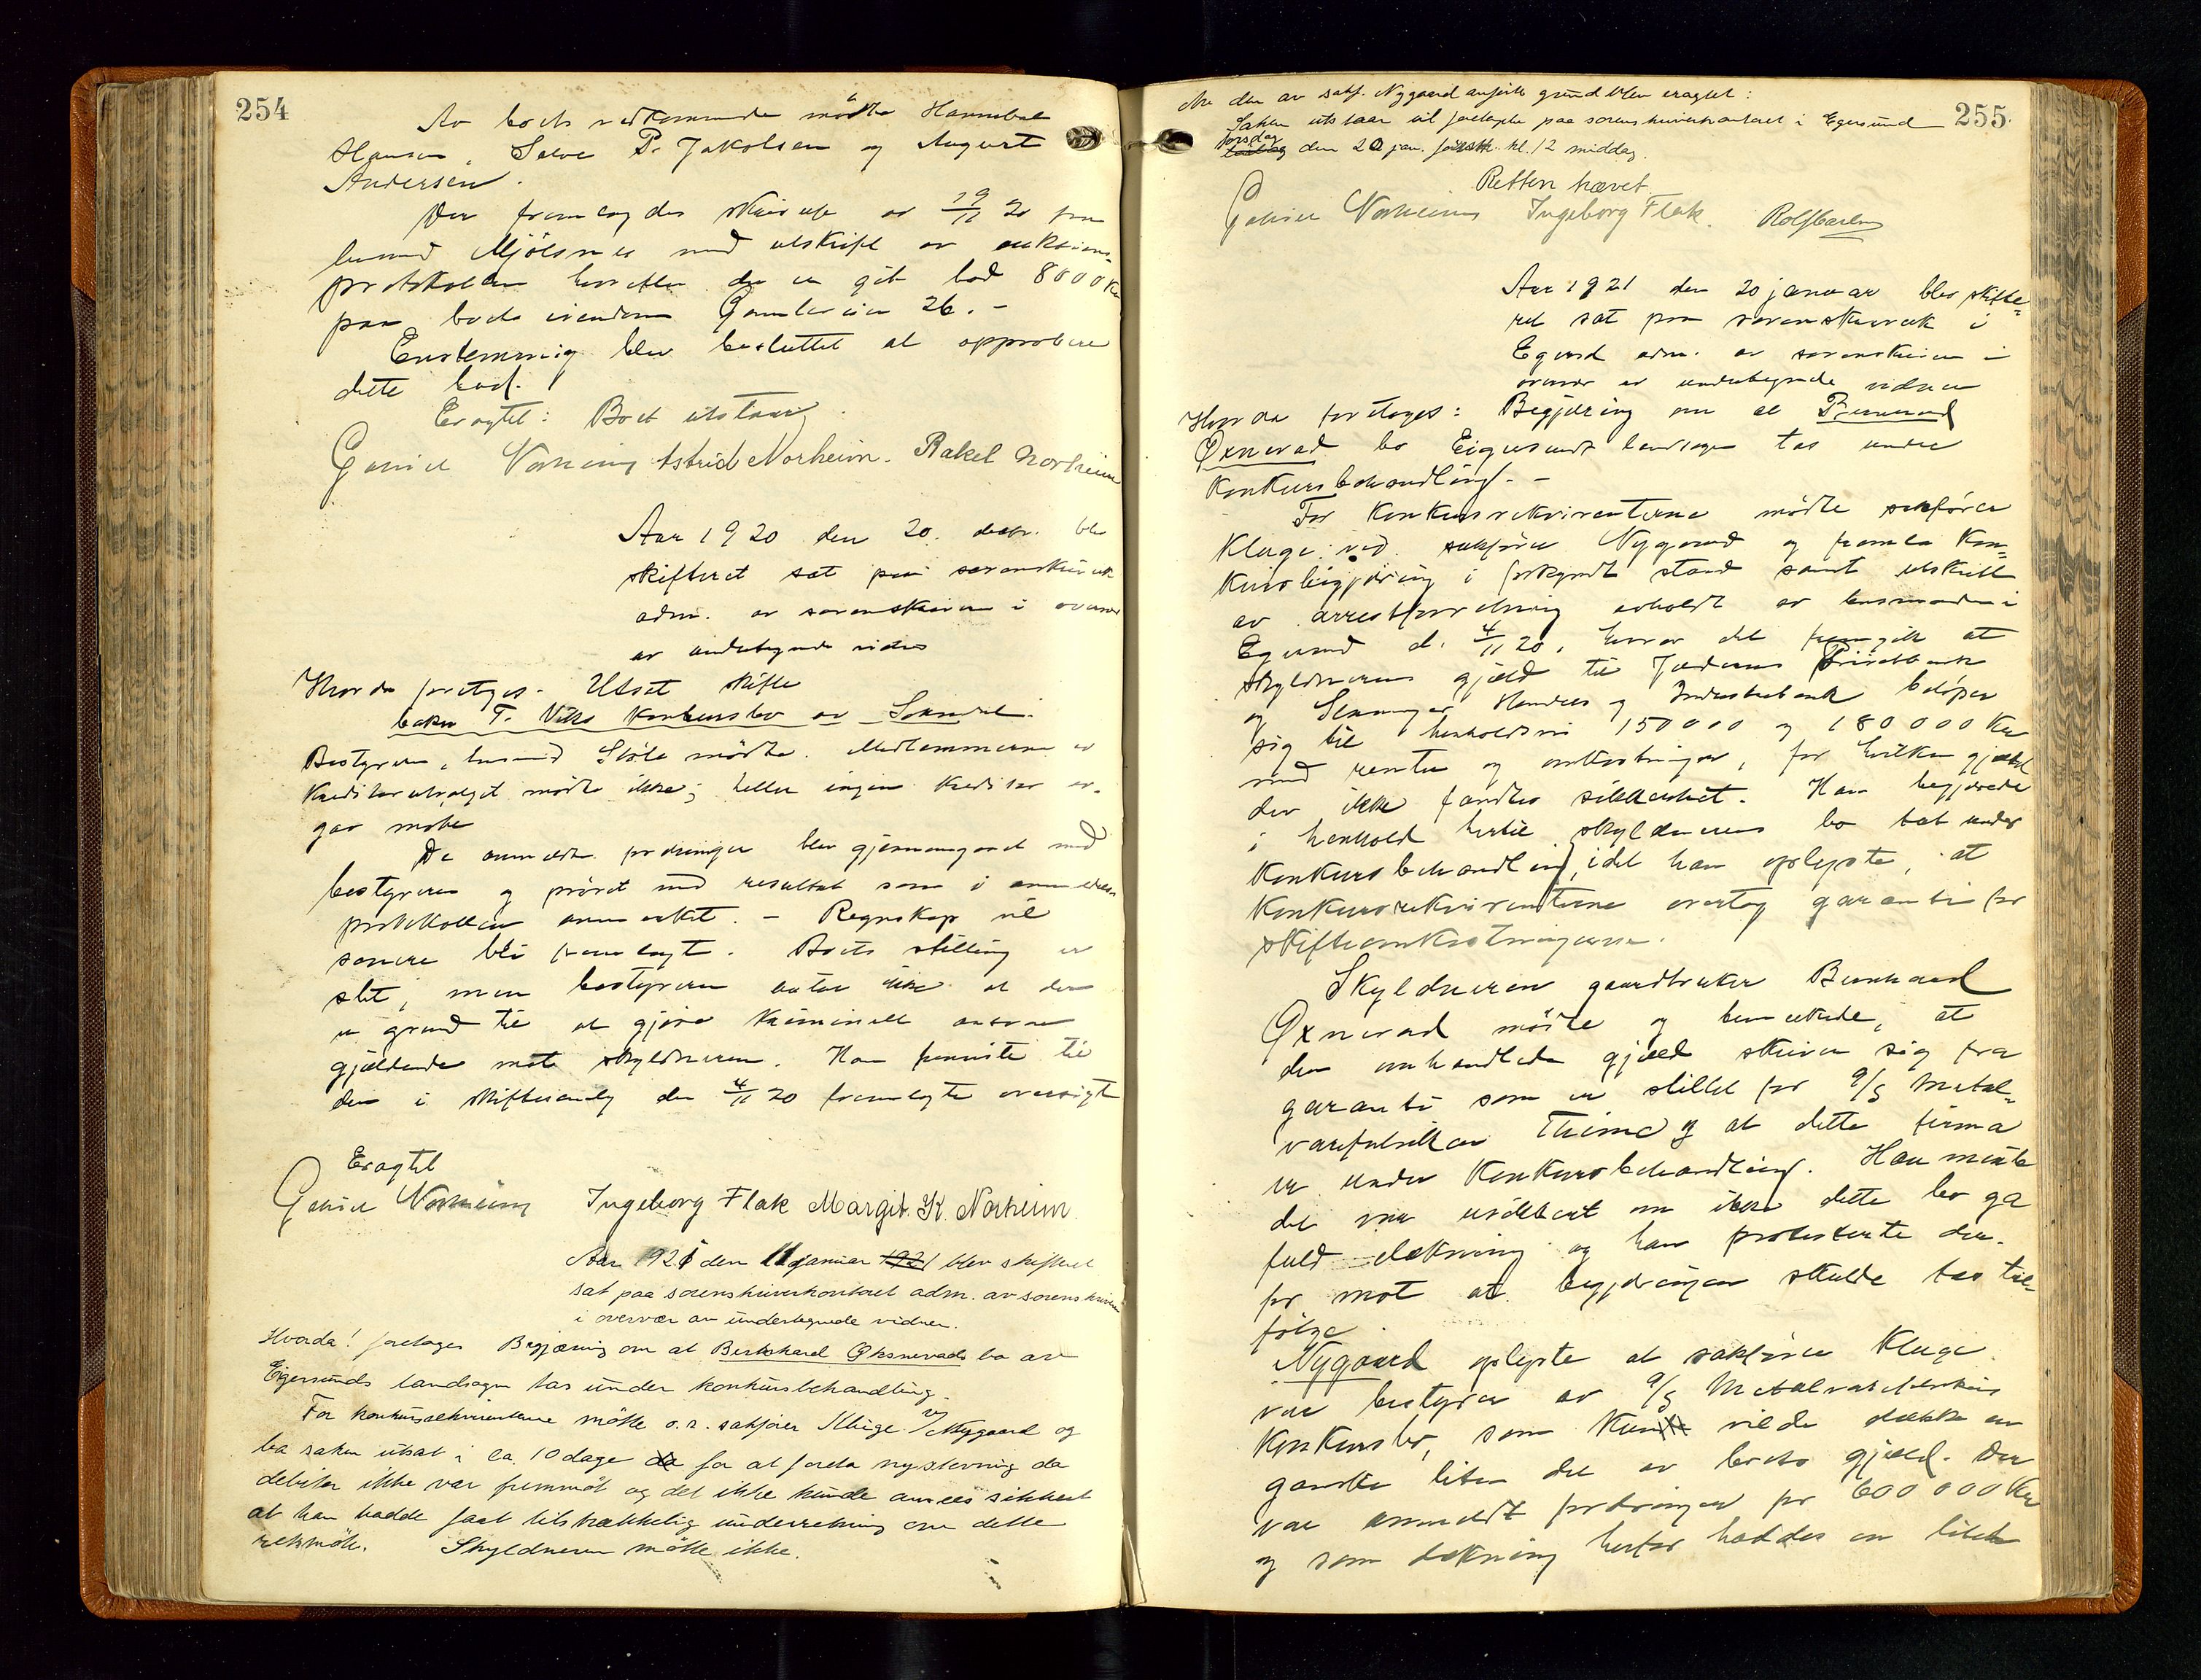 254
Av boets vedkommende mødte Hannibal
Hansen, Salve P. Jakobsen og August
Andersen.
Der fremlagdes skrivelse av 19/11 20 fra
lensmand Mjølsnes med utskrift av auktions-
protokollen hvorefter der er git bod 8000 Kr
paa boets eiendom Gamleveien 26. -
Enstemmig blev besluttet at approbere
dette bud.
Eragtet: Boet utstaar.
Gabriel Norheim Astrid Norheim. Rakel Norheim
Aar 1920 den 20. decbr. blev
skifteret sat paa sorenskriverk
adm. av sorenskriveren i overvær
av undertegnede vidner
Hvorda foretoges. Utsat skifte
baker T. konkursbo av Sokndal.
Bestyreren, lensmand Skåla mødte. Medlemmerne av
kreditorutvalget mødte ikke; heller ingen kreditor av-
gav møte
De anmeldte fordringer blev gjennemgaaet med
bestyreren og prøvet med resultat som i anmeldelses
protokollen anmerket. - Regnskap vil
senere bli fremlagt. Boets stilling er
slet, men bestyreren antar ikke at der
er grund til at gjøre kriminelt ansvar
gjældende mot skyldneren. Han henviste til
den i skiftesamling den 4/11 20 fremlagte oversigt
Eragtet
Gabriel Norheim Ingeborg Flak Margit K. Norheim.
Aar 1921 den 11 januar 1921 blev skifteret
sat paa sorenskriverkontoret adm. av sorenskriveren
i overvær av undertegnede vidner.
Hvorda! foretoges Begjæring om at Bernhard Øksnevads bo av
Eigersunds landsogn tas under konkursbehandling.
For konkursrekvirenterne møtte o.r. sakfører Kluge v/ Nygaard og
ba saken utsat i ca. 10 dage da for at foreta ny stevning da
debitor ikke var fremmøt og det ikke kunde ansees sikkert
at han hadde faat tilstrækkelig underretning om dette
retsmøte. Skyldneren møtte ikke.
255
Av den av sakf. Nygaard anførte grund blev eragtet:
Saken utstaar til foretagelse paa sorenskriverkontoret i Egersund
torsdag
tirsdag den 20 jan. førstk. kl. 12 middag.
Retten hævet
Gabriel Norheim Ingeborg Flak. Rolf Carlsen
Aar 1921 den 20 januar blev skifte-
ret sat paa sorenskriverk i
Egersd adm. av sorenskriveren i
overvær av undertegnede vidner
Hvorda foretoges: Begjæring om at Bernhard
Øxnevad bo Eigersunds landsogn tas under
konkursbehandling. -
For konkursrekvirenterne mødte sakfører
Kluge ved sakfører Nygaard og fremla kon-
kursbegjæring i forkyndt stand samt utskrift
av arrestforretning avholdt av lensmanden i
Egersund d. 4/11 20, hvorav det fremgik at
skyldnerens gjæld til Jæderens Privatbank
og Stavanger Handels og Industribank beløper
sig til henholdsvis 150000 og 180000 Kr
med renter og omkostninger, for hvilken gjæld
der ikke fandtes sikkerhet. Han begjærede
i henhold hertil skyldnerens bo tat under
konkursbehandling, idet han oplyste, at
konkursrekvirenterne overtog garanti for
skifteomkostningerne.
Skyldneren gaardbruker Bernhard
Øxnevad mødte og bemerkede, at
den omhandlede gjæld skriver sig fra
garanti som er stillet for A/S Metal-
varefabriken Thime og at dette firma
er under konkursbehandling. Han mente
det var usikkert om ikke dette bo ga
fuld dækning og han protesterte der-
for mot at begjæringen skulde tas til-
følge.
Nygaard oplyste at sakfører Kluge
var bestyrer av A/S Metalvarefabrikens
konkursbo, som kun vilde dække en
ganske liten del av boets gjæld. Der
var anmeldt fordringer for 600 000 Kr
og som dækning herfor haddes en liten